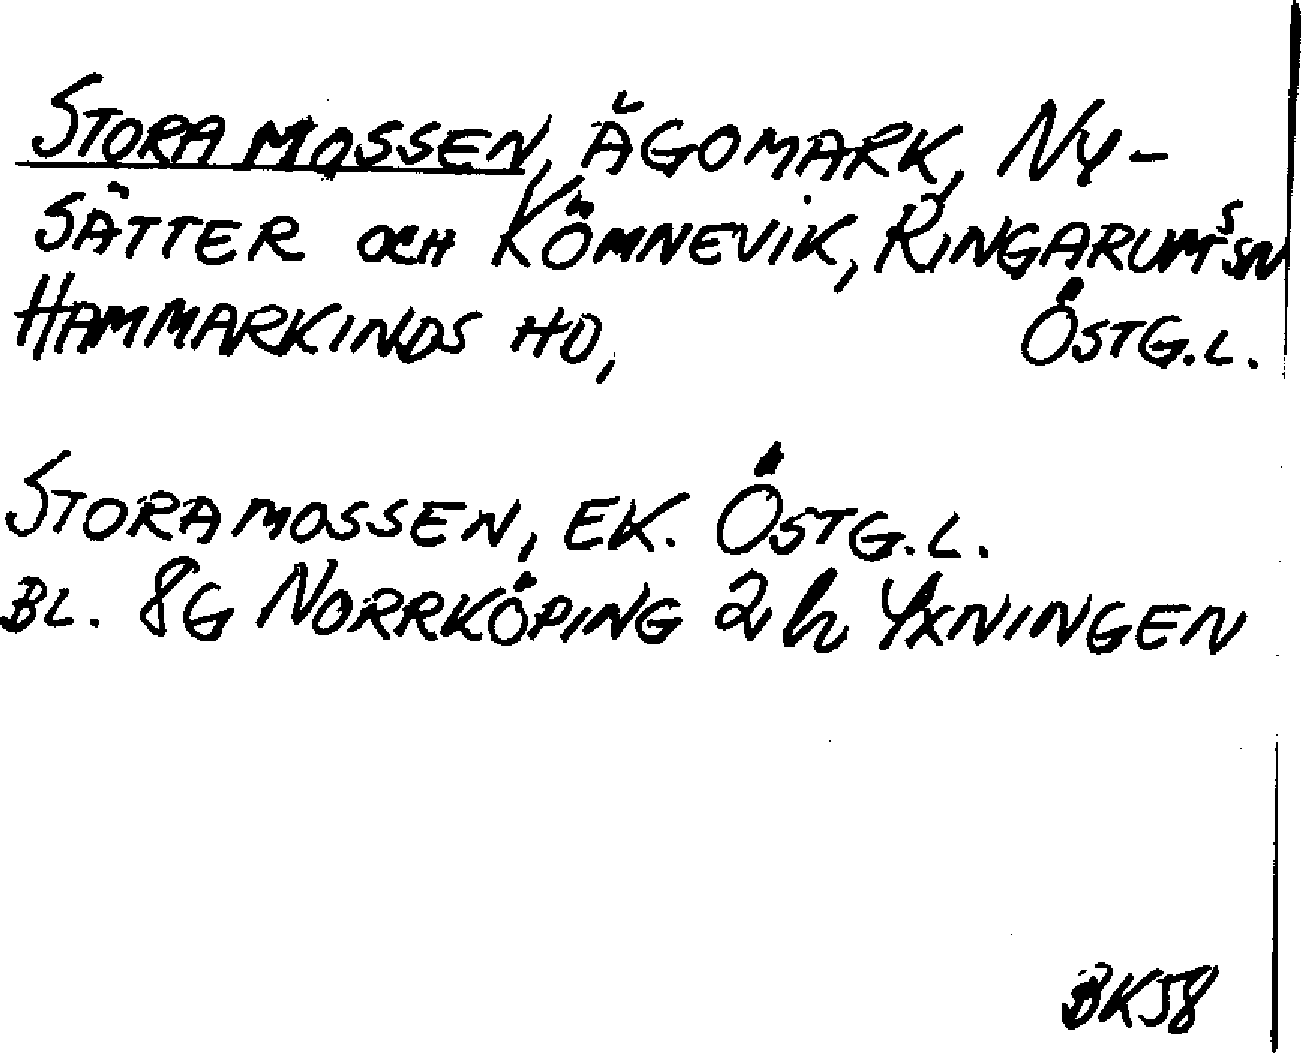 STORA MOSSEN, ÄGOMARK, NY-
SÄTTER OCH KÖMNEVIK, RINGARUMS SN
HAMMARKINDS HD, ÖSTG.L.
STORAMOSSEN, EK. ÖSTG.L.
BL. 8G NORRKÖPING 2h YXNINGEN
BK58